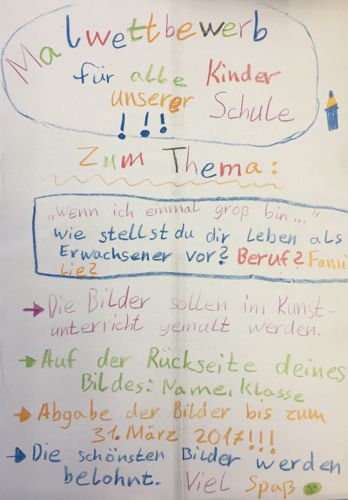 Malwettbewerb
für alle Kinder
unserer Schule
!!!
Zum Thema:
„Wenn ich einmal groß bin..."
wie stellst du dir Leben als
Erwachsener vor? Beruf? Fami
lie?
→ Die Bilder sollen im Kunst-
unterricht gemalt werden.
→ Auf der Rückseite deines
Bildes: Name, Klasse
→ Abgabe der Bilder bis zum
31. März 2017!!!
→ Die schönsten Bilder werden
belohnt. Viel Spaß